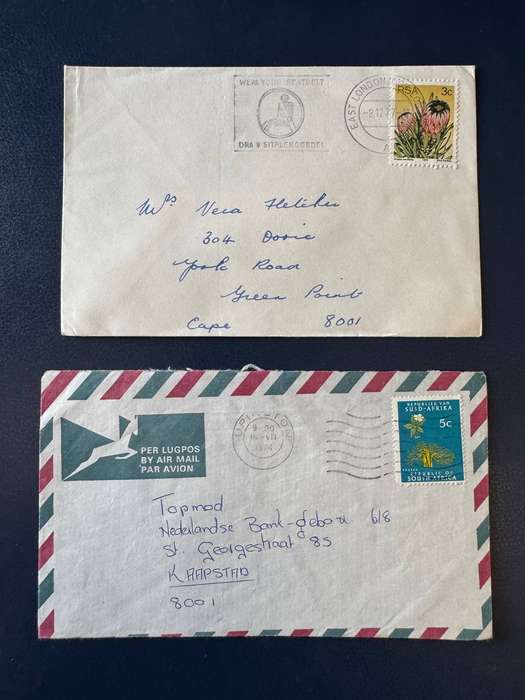 WEAR YOUR SEATBELT
DRA U SITPLEKGORDEL
EAST LONDON
RSA 3c
Mrs Vera Fletcher
304 Doric
York Road
Green Point
Cape 8001
PER LUGPOS
BY AIR MAIL
PAR AVION
UPINGTON
REPUBLIEK VAN
SUID-AFRIKA
5c
REPUBLIC OF
SOUTH AFRICA
Topmod
Nederlandse Bank-gebou 618
St. Georgestraat 85
KAAPSTAD
8001